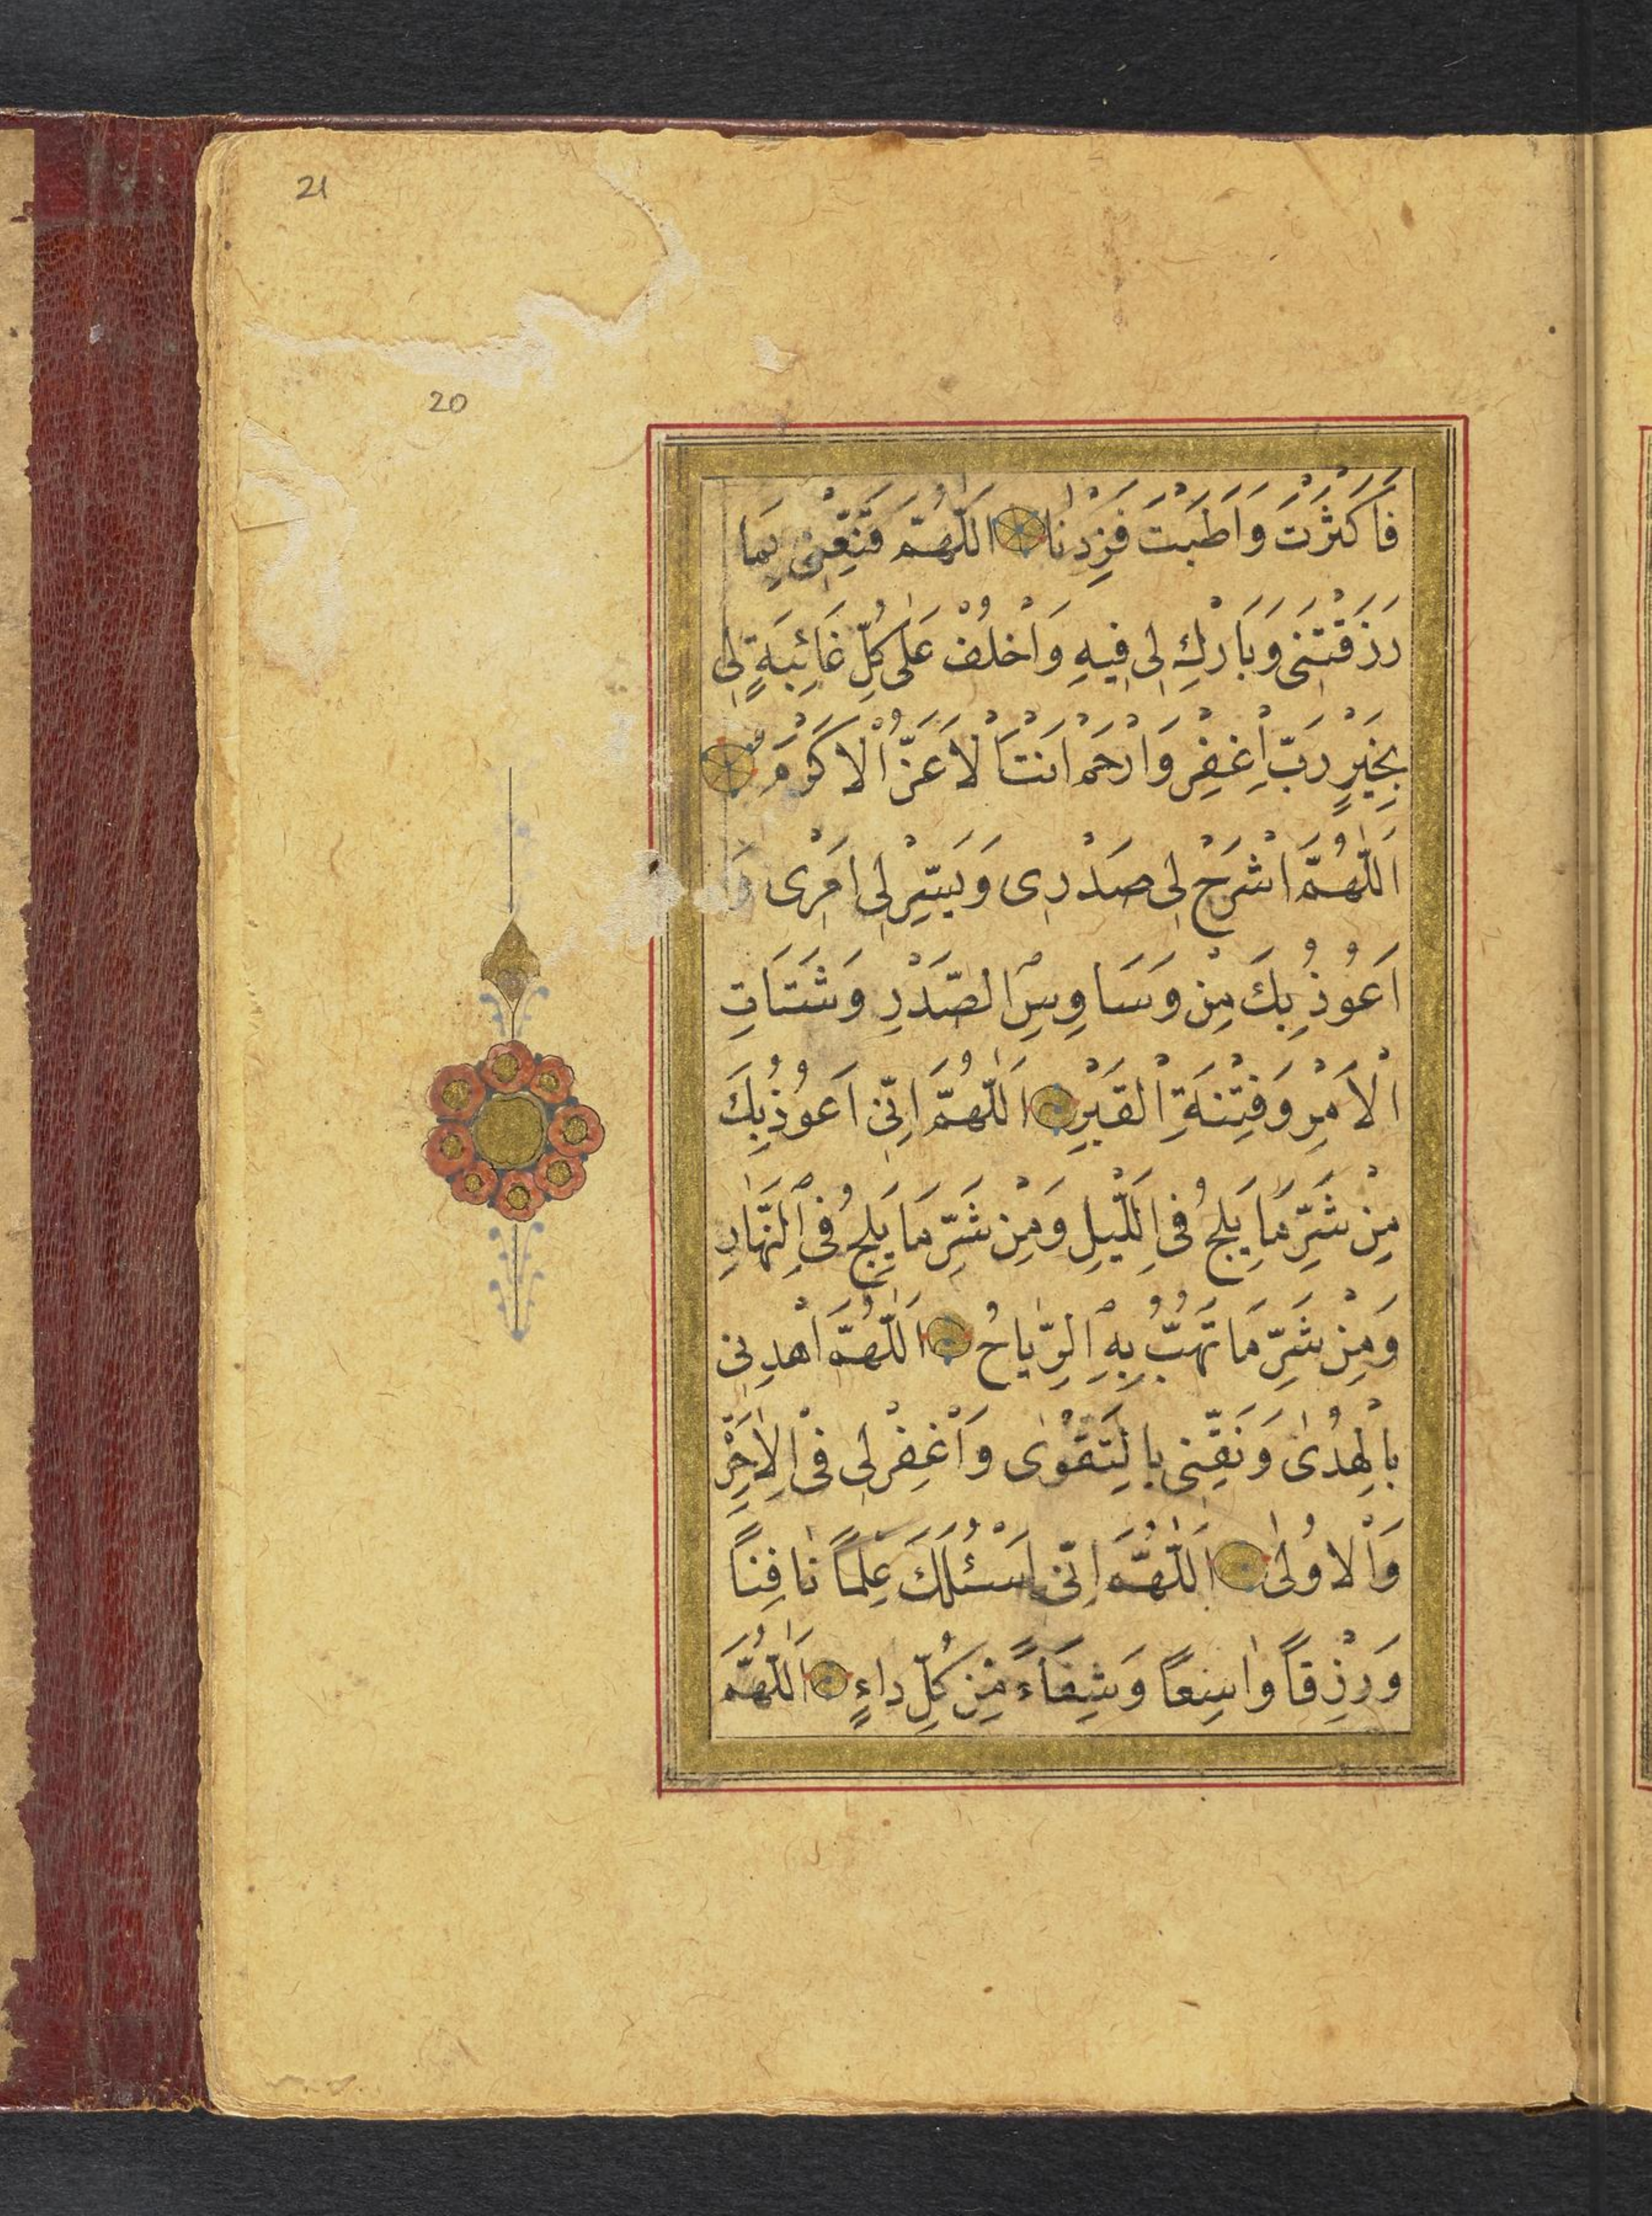 21
20
فَاَكْثَرْتَ وَاَطَبْتَ فَزِدْنٰا اَللّٰهُمَّ قَنِّعْنِى بِمَا
رَزَقْتَنِى وَبَارِكْ لِى فِيهِ وَاخْلُفْ عَلٰى كُلِّ غَائِبَةٍ لِى
بِخَيْرٍ رَبِّ اغْفِرْ وَارْحَمْ اَنْتَ الْاَعَزُّ الْاَكْرَمُ
اَللّٰهُمَّ اشْرَحْ لِى صَدْرِى وَيَسِّرْ لِى اَمْرِى وَ
اَعُوذُ بِكَ مِنْ وَسَاوِسِ الصَّدْرِ وَشَتَاتِ
الْاَمْرِ وَفِتْنَةِ الْقَبْرِ اَللّٰهُمَّ اِنِّى اَعُوذُ بِكَ
مِنْ شَرِّ مَا يَلِجُ فِى اللَّيْلِ وَمِنْ شَرِّ مَا يَلِجُ فِى النَّهَارِ
وَمِنْ شَرِّ مَا تَهُبُّ بِهِ الرِّيَاحُ اَللّٰهُمَّ اهْدِنِى
بِالْهُدٰى وَنَقِّنِى بِالتَّقْوٰى وَاغْفِرْ لِى فِى الْاٰخِرَةِ
وَالْاُولٰى اَللّٰهُمَّ اِنِّى اَسْئَلُكَ عِلْمًا نٰافِعًا
وَرِزْقًا وٰاسِعًا وَشِفَاءً مِنْ كُلِّ دٰاءٍ اَللّٰهُمَّ